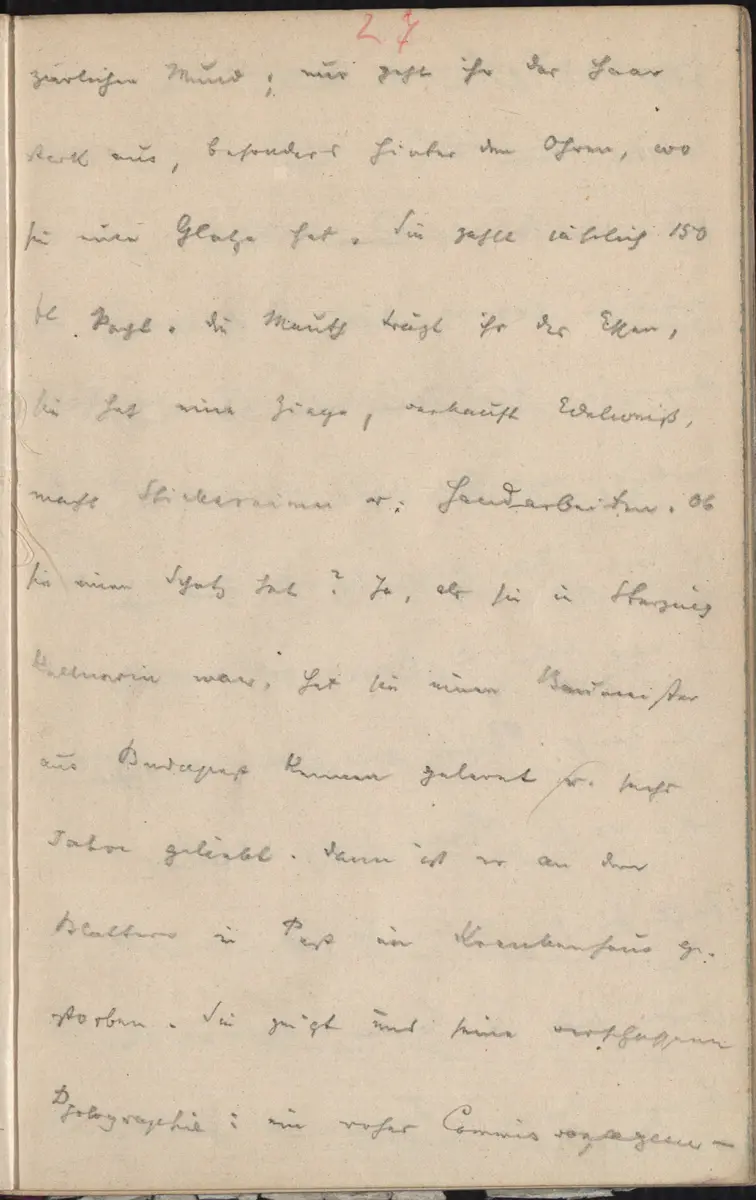 27
zierlichen Mund; nur geht ihr das Haar
stark aus, besonders hinter den Ohren, wo
sie eine Glatze hat. Sie zahlt jährlich 150
fl Pacht. Die Mauth trägt ihr das Essen,
sie hat eine Ziege, verkauft Edelweiß,
macht Stickereien u. Handarbeiten. Ob
sie einen Schatz hat? Ja, als sie in Sterzing
Kellnerin war, hat sie einen Baumeister
aus Budapest kennen gelernt u. sechs
Jahre geliebt. Dann ist er an den
Blattern in Pest im Krankenhaus ge-
storben. Sie zeigt uns seine verschossene
Photographie: ein roher Commis